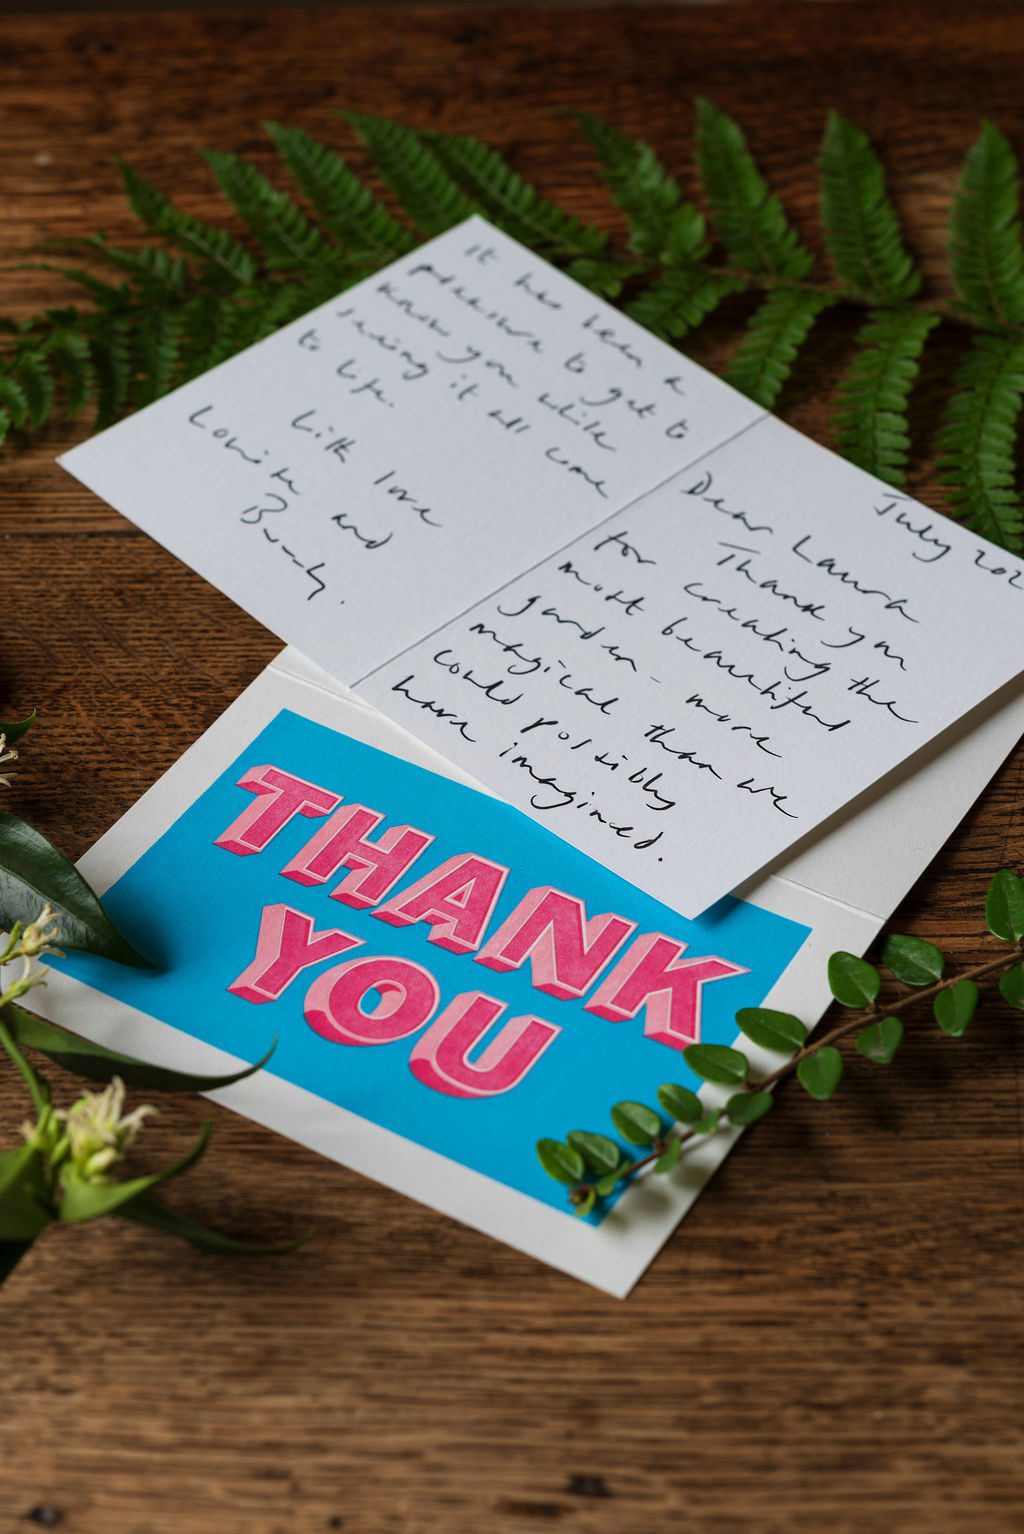 July 202
Dear Laura
Thank you
for creating the
most beautiful
garden - more
magical than we
could possibly
have imagined.
It has been a
pleasure to get to
know you while
seeing it all come
to life.
With love
and
THANK
YOU